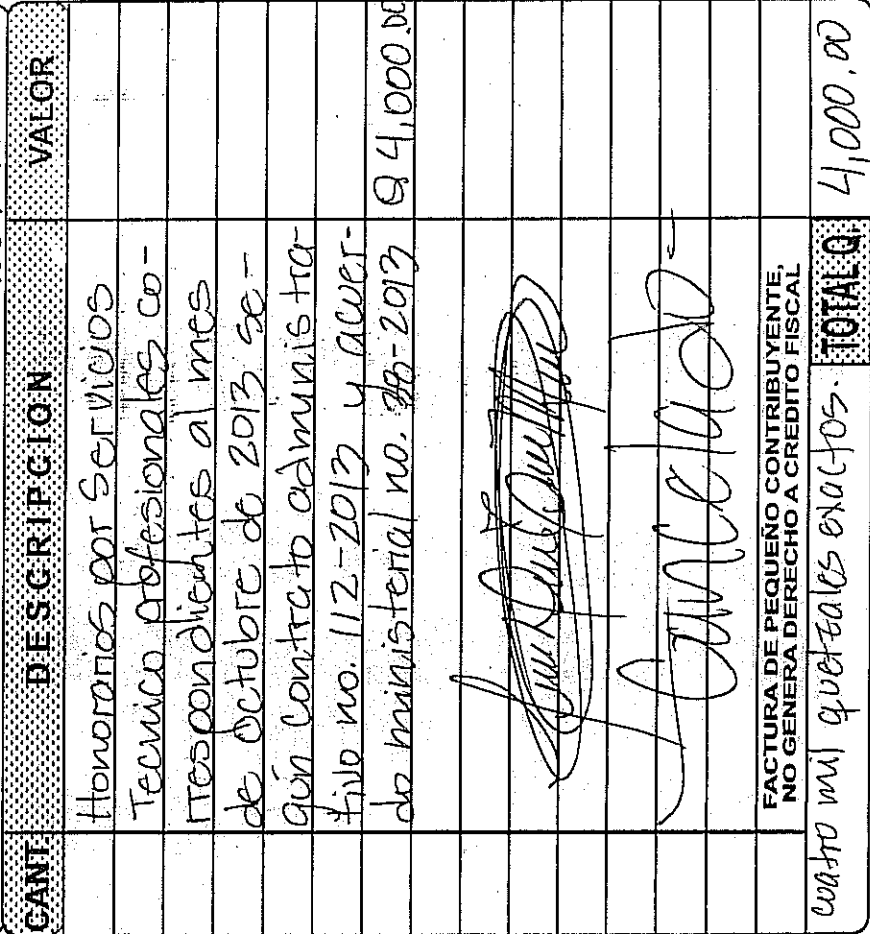 CANT. DESCRIPCION VALOR
Honorarios por Servicios
Tecnico profesionales co-
rrespondientes al mes
de Octubre de 2013 se-
gún contrato administra-
tivo no. 112-2013 y acuer-
do ministerial no. -2013 Q 4,000.00
Cancelado-
FACTURA DE PEQUEÑO CONTRIBUYENTE,
NO GENERA DERECHO A CREDITO FISCAL
cuatro mil quetzales exactos. TOTAL Q. 4,000.00